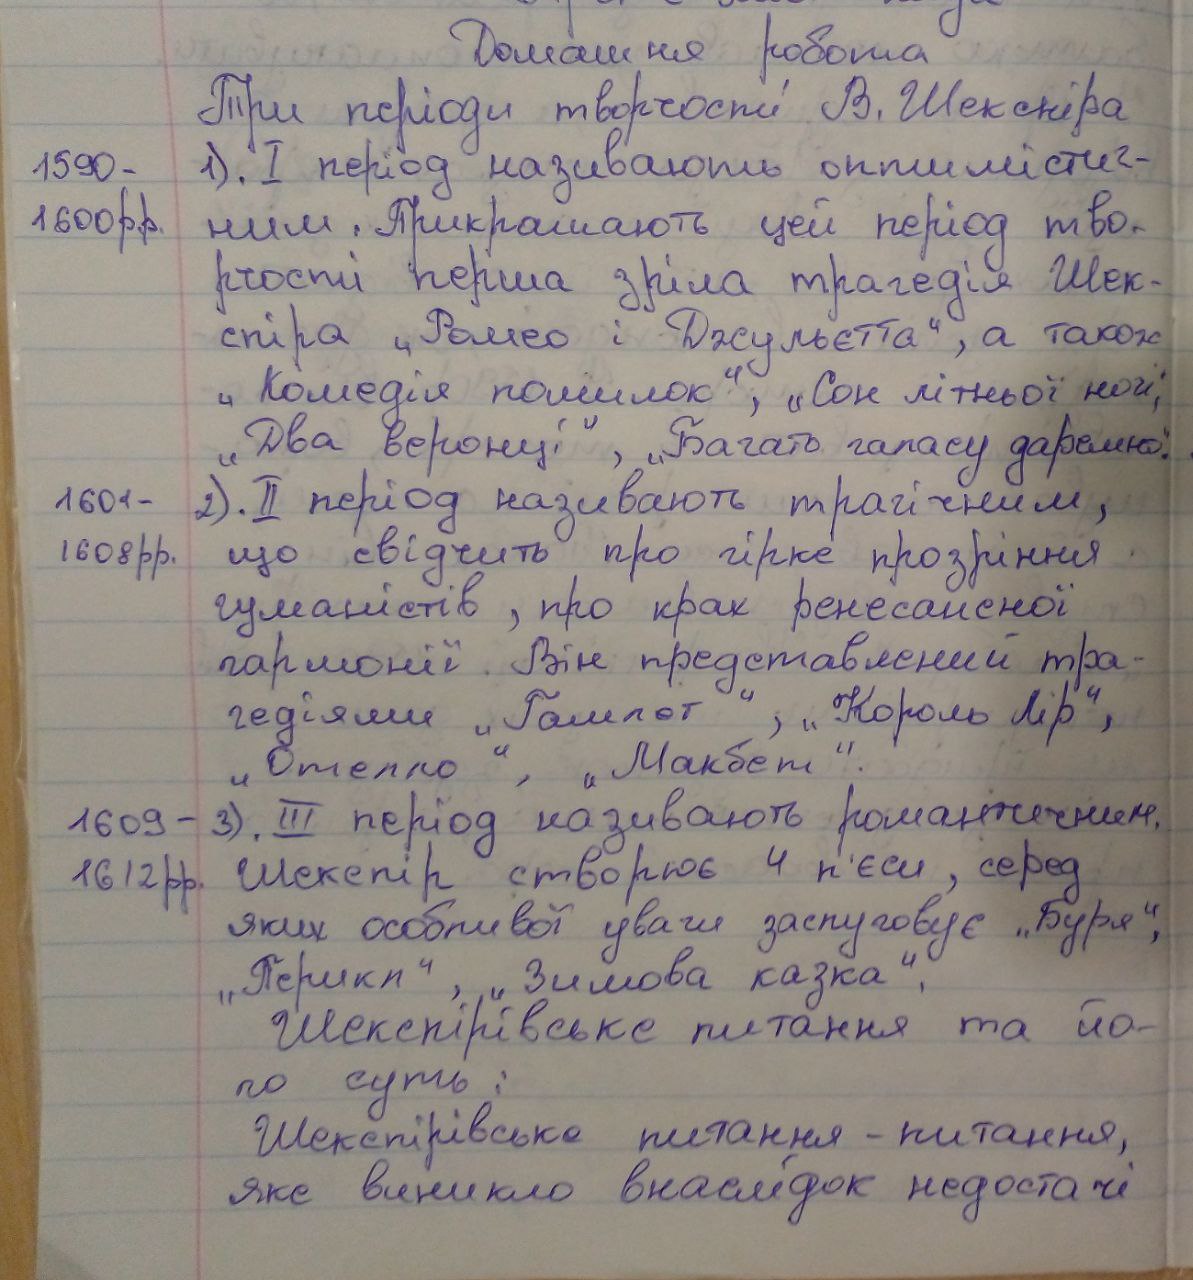 Домашня робота
Три періоди творчості В. Шекспіра
1590- 1). І період називають оптимістич-
1600рр. ним. Прикрашають цей період тво-
рчості перша зріла трагедія Шек-
спіра „Ромео і Джульєтта“, а також
„Комедія помилок“, „Сон літньої ночі,
„Два веронці“, „Багато галасу даремно“.
1601- 2). ІІ період називають трагічним,
1608рр. що свідчить про гірке прозріння
гуманістів, про крах ренесансної
гармонії. Він представлений тра-
гедіями „Гамлет“, „Король Лір“,
„Отелло“, „Макбет“.
1609- 3). ІІІ період називають романтичним.
1612рр. Шекспір створює 4 п'єси, серед
яких особливої уваги заслуговує „Буря“,
„Перикл“, „Зимова казка“.
Шекспірівське питання та йо-
го суть:
Шекспірівське питання - питання,
яке виникло внаслідок недостачі